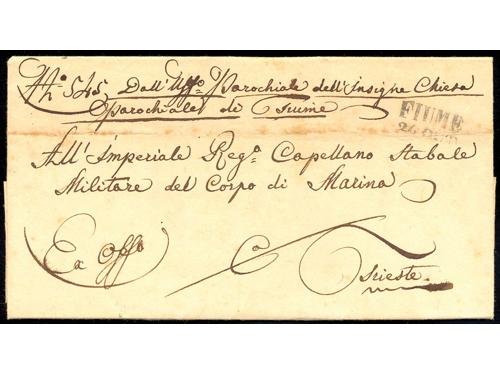 N.° 545 Dall' Uff.° Parochiale dell' Insigne Chiesa
Parochiale di Fiume
FIUME
All' Imperiale Reg.° Capellano Stabale
Militare del Corpo di Marina
Ex Offo
a
Trieste